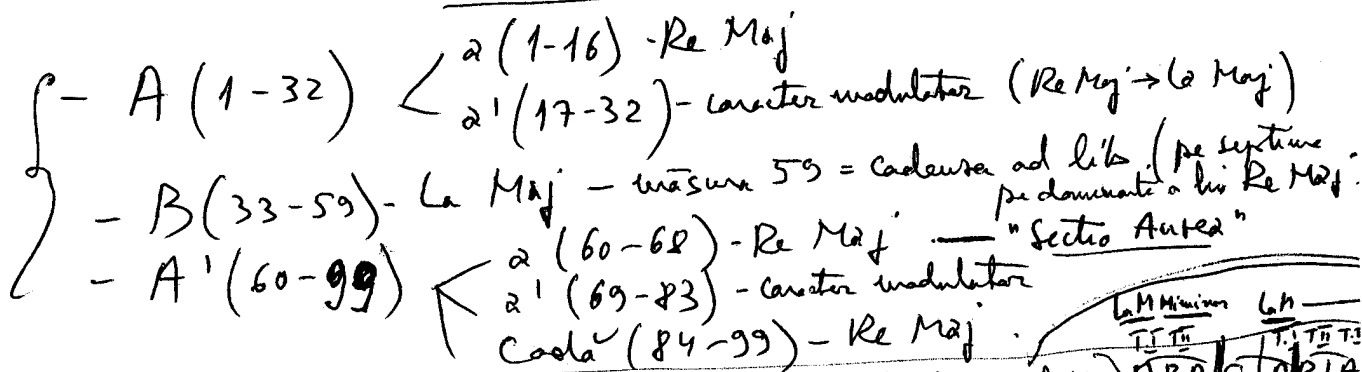 a (1-16) - Re Maj
- A (1-32)
a' (17-32) - caracter modulator (Re Maj → La Maj)
- B (33-59) - La Maj - măsura 59 = cadența ad lib. (pe septime
pe dominanta a lui Re Maj.
a (60-68) - Re Maj — "Sectio Aurea"
- A' (60-99)
a' (69-83) - caracter modulator
Coda (84-99) - Re Maj.
LaM Mi minor LaM
T.I T.II T.I T.II